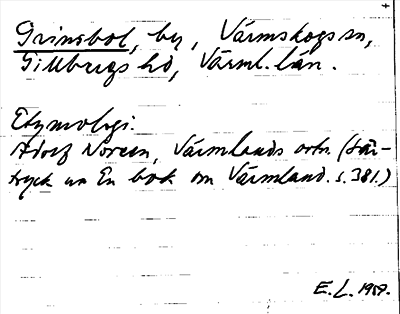 Grinsbol, by, Värmskogs sn,
Gillbergs hd, Värml. län.
Etymologi:
Adolf Noreen, Värmlands ortn. (sär-
tryck ur En bok om Värmland. s. 381.)
E. L. 1959.